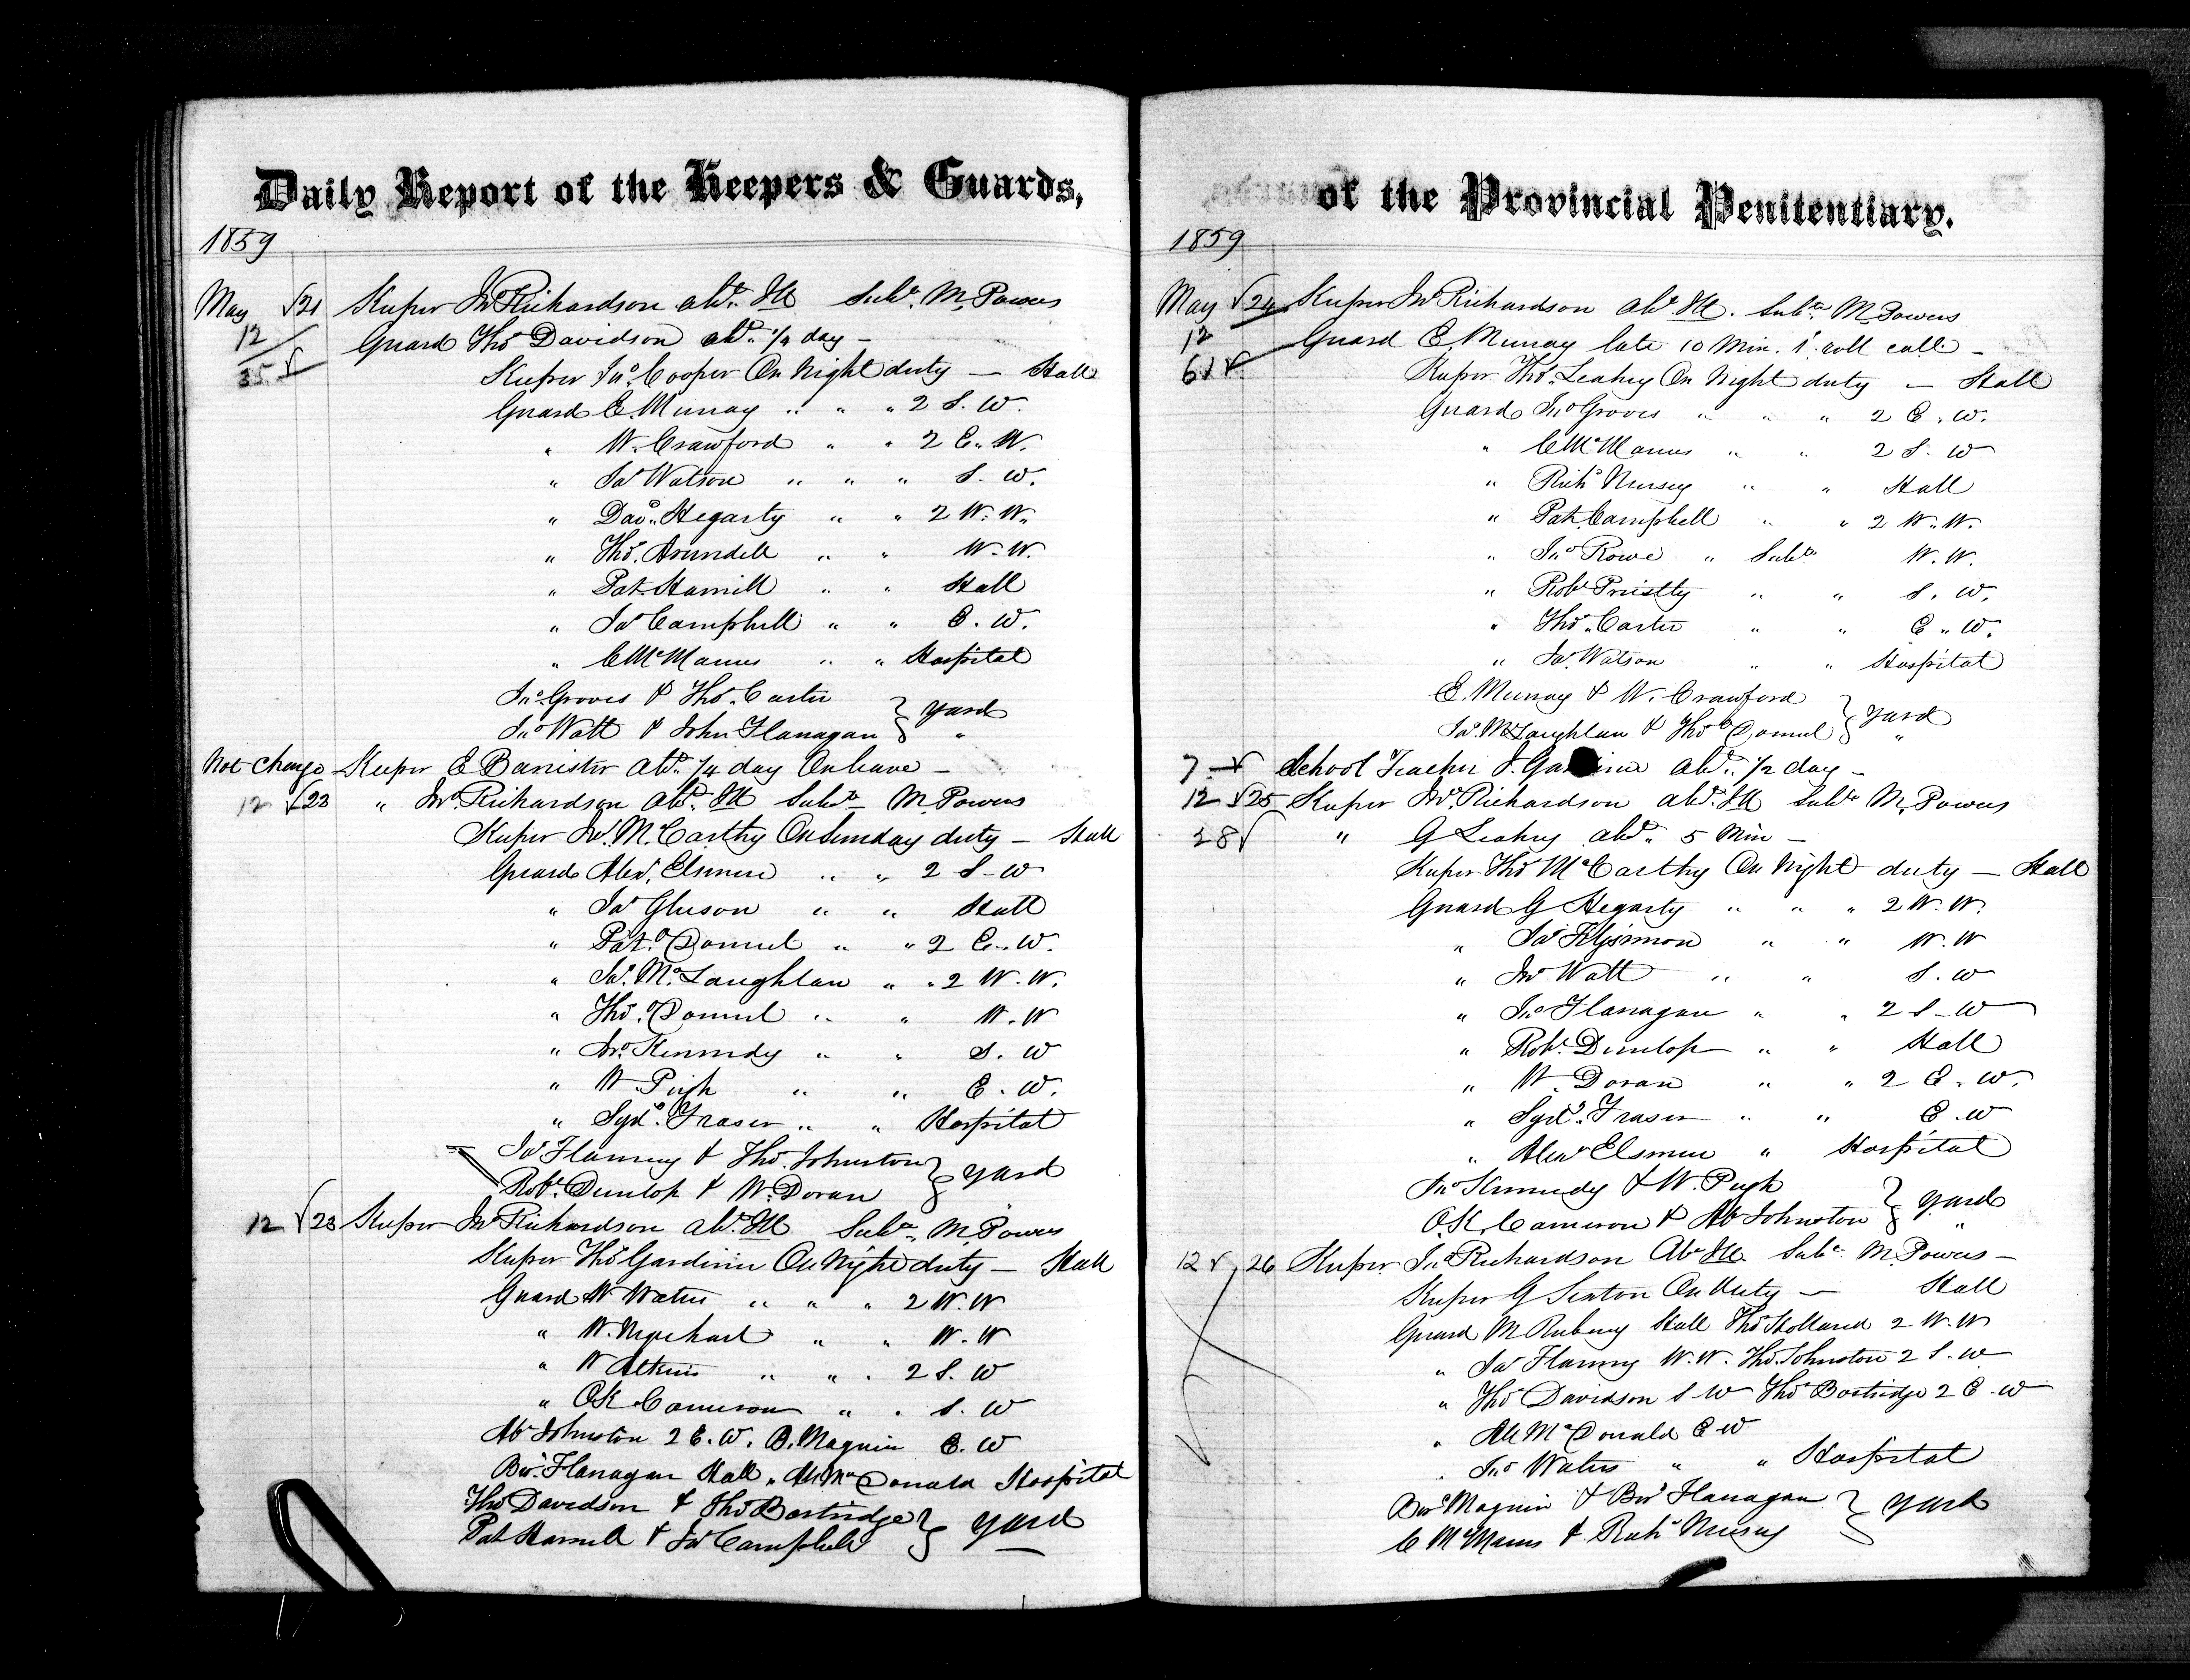 Daily Report of the Keepers & Guards,
1859
May √21 Keeper Jno Richardson abt. Ill Subte. M. Powers
12 Guard Thos Davidson abt. 1/4 day –
35 √ Keeper Jno. Cooper On Night duty — Hall
Guard E. Murray " " " 2 S. W.
" W. Crawford " " 2 E. W.
" Jas Watson " " " S. W.
" Davd. Hegarty " " 2 W. W.
" Thos. Arundell " " W. W.
" Pat Hamill " " Hall
" Jas Campbell " " E. W.
" C McManus " " Hospital
Jno. Groves & Thos. Carter } Yard
Jno Watt & John Flanagan } "
Not Charge – Keeper E Banister abt. 1/4 day On leave –
12 √23 " Jno. Richardson abt. Ill Subte M. Powers
Keeper Jas. McCarthy On Sunday duty – Hall
Guard Alexr. Elsmere " " 2 S – W
" Jas Gleeson " " Hall
" Pat. O'Donnel " " 2 E. W.
" Jas. McLaughlan " " 2 W. W.
" Thos. O'Donnel " " W. W
" Jno. Kennedy " " S. W
" W. Pugh " " E. W.
" Sydy. Fraser " " Hospital
Jas Flanney & Thos. Johnston } Yard
Robt. Dunlop & W. Doran
12 √23 Keeper Jno Richardson abt. Ill Subte. M. Powers
Keeper Thos Gardiner On Night duty – Hall
Guard W Waters " " " 2 W. W
" W. Urquhart " " W. W
" W Atkins " " " 2 S. W
" O K Cameron " " S. W
Ab Johnston 2 E. W. B. Maguin E. W
Bar. Flanagan Hall " Al McDonald Hospital
Thos Davidson & Thos Bostridge } Yard
Pat Hamill & Jas Campbell
of the Provincial Penitentiary.
1859
May √24 Keeper Jno Richardson abt. Ill. Subte M. Powers
12 Guard E. Murray late 10 Min. 1' roll call –
61 √ Keeper Thos. Leahey On Night duty – Hall
Guard Jno Groves " " " 2 E. W.
" C McManus " " 2 S – W
" Richd Nursey " " Hall
" Pat. Campbell " " 2 W. W.
" Jno Rowe " Subte W. W.
" Robt Priestly " " S. W.
" Thos. Carter " " E. W.
" Jas. Watson " " Hospital
E. Murray & W. Crawford } Yard
Jas. McLaughlan & Thos O'Donnel } "
7 – √ School Teacher J. Gardiner abt. 1/2 day –
12 √25 Keeper Jno. Richardson abt. Ill Subte M. Powers
28 √ " G Leahey abt. 5 Min –
Keeper Thos McCarthy On Night duty – Hall
Guard G Hegarty " " " 2 W. W.
" Jas Fitzsimon " " W. W
" Jno Watt " " S. W
" Jno Flanagan " " 2 S – W
" Robt. Dunlop " " Hall
" W. Doran " " 2 E. W.
" Sydy. Fraser " " E. W
" Alexr Elsmere " Hospital
Jno Kennedy & W. Pugh } Yard
O. K. Cameron & Ab Johnston } "
12 √ 26 Keeper Jno Richardson Abt Ill Subte. M. Powers –
Keeper G Sexton On Duty – Hall
Guard M Rubery Hall Thos Holland 2 W. W
" Jas Flanney W. W. Thos. Johnston 2 S. W
" Thos Davidson S – W Thos Bostridge 2 E – W
" Al McDonald E – W
" Jno Waters " " Hospital
Bar Maguin & Bar Flanagan } Yard
C McManus & Richd Nursey